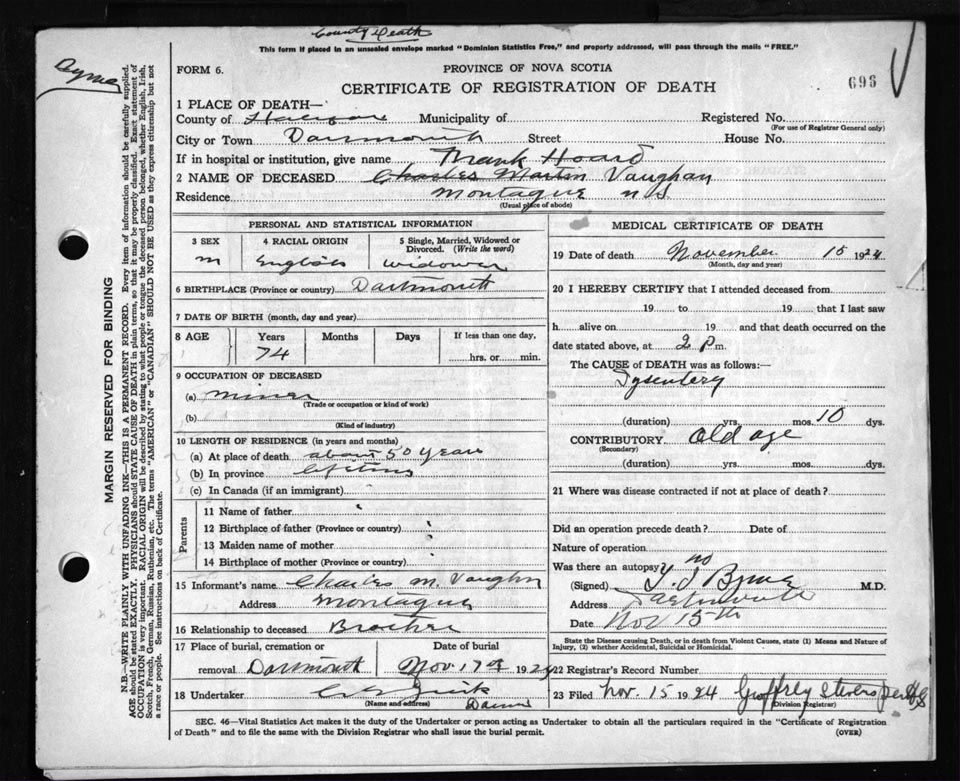 County Death
This form if placed in an unsealed envelope marked "Dominion Statistics Free," and properly addressed, will pass through the mails "FREE."
FORM 6.
PROVINCE OF NOVA SCOTIA
696
CERTIFICATE OF REGISTRATION OF DEATH
1 PLACE OF DEATH—
County of Halifax Municipality of Registered No.
(For use of Registrar General only)
City or Town Dartmouth Street House No.
If in hospital or institution, give name
2 NAME OF DECEASED Charles Martin Vaughan
Residence Montague N.S.
(Usual place of abode)
PERSONAL AND STATISTICAL INFORMATION
3 SEX 4 RACIAL ORIGIN 5 Single, Married, Widowed or Divorced. (Write the word)
M English Widower
6 BIRTHPLACE (Province or country) Dartmouth
7 DATE OF BIRTH (month, day and year)
8 AGE Years Months Days If less than one day,
74 hrs. or min.
9 OCCUPATION OF DECEASED
(a) miner
(Trade or occupation or kind of work)
(b)
(Kind of industry)
10 LENGTH OF RESIDENCE (in years and months)
(a) At place of death about 50 years
(b) In province lifetime
(c) In Canada (if an immigrant)
Parents
11 Name of father
12 Birthplace of father (Province or country)
13 Maiden name of mother
14 Birthplace of mother (Province or country)
15 Informant's name Charles M. Vaughn
Address Montague
16 Relationship to deceased Brother
17 Place of burial, cremation or Date of burial
removal Dartmouth Nov. 17 1924
18 Undertaker
(Name and address)
MEDICAL CERTIFICATE OF DEATH
19 Date of death November 15 1924
(Month, day and year)
20 I HEREBY CERTIFY that I attended deceased from
19 to 19 that I last saw
h alive on 19 and that death occurred on the
date stated above, at 2 P m.
The CAUSE of DEATH was as follows:—
Dysentery
(duration) yrs. mos. 10 dys.
CONTRIBUTORY Old age
(Secondary)
(duration) yrs. mos. dys.
21 Where was disease contracted if not at place of death?
Did an operation precede death? Date of
Nature of operation
Was there an autopsy no
(Signed) M.D.
Address Dartmouth
Date Nov 15th
State the Disease causing Death, or in death from Violent Causes, state (1) Means and Nature of Injury, (2) whether Accidental, Suicidal or Homicidal.
22 Registrar's Record Number
23 Filed Nov. 15 1924 Geoffrey Stevens
(Division Registrar)
SEC. 46—Vital Statistics Act makes it the duty of the Undertaker or person acting as Undertaker to obtain all the particulars required in the "Certificate of Registration
of Death" and to file the same with the Division Registrar who shall issue the burial permit.
(OVER)
MARGIN RESERVED FOR BINDING
N.B.—WRITE PLAINLY WITH UNFADING INK—THIS IS A PERMANENT RECORD. Every item of information should be carefully supplied.
AGE should be stated EXACTLY. PHYSICIANS should STATE CAUSE OF DEATH in plain terms, so that it may be properly classified. Exact statement of
OCCUPATION is very important. RACIAL ORIGIN will be described by stating to what people or tongue the deceased person belonged, whether English, Irish,
Scotch, French, German, Russian, Ruthenian, etc. The terms "AMERICAN" or "CANADIAN" SHOULD NOT BE USED as they express citizenship but not
a race or people. See instructions on back of Certificate.